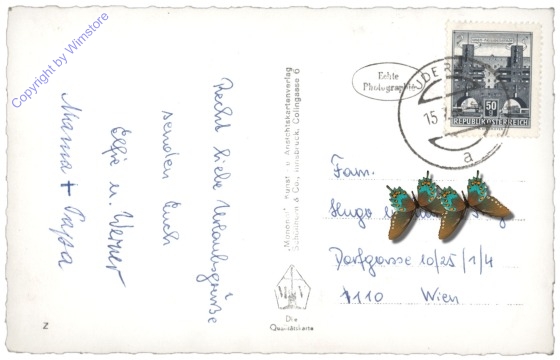 Copyright by Wimstore
Recht liebe Urlaubsgrüße
senden Euch
Elfie u. Werner
Mama + Papa
"Monopol" Kunst- u. Ansichtskartenverlag
& Co., Innsbruck, Colingasse 6
Die
Qualitätskarte
Echte
Photographie
50
REPUBLIK ÖSTERREICH
15.
a
Fam.
Hugo u.
Dorfgasse 10/25/1/4
1110 Wien
Z